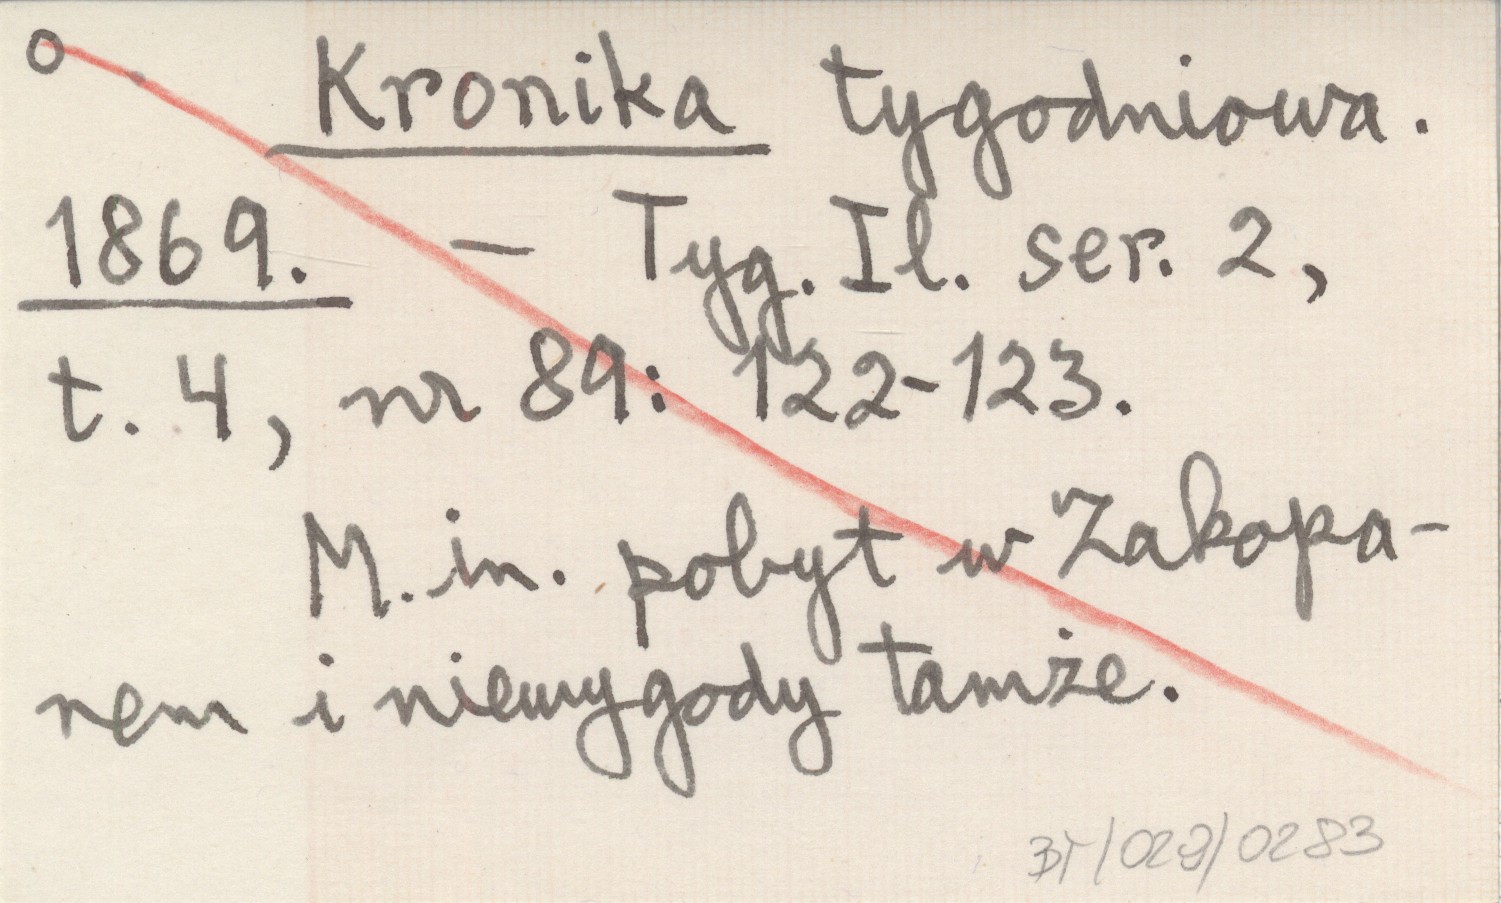 o Kronika tygodniowa.
1869. – Tyg. Il. ser. 2,
t. 4, nr 89: 122-123.
M. in. pobyt w Zakopa-
nem i niewygody tamże.